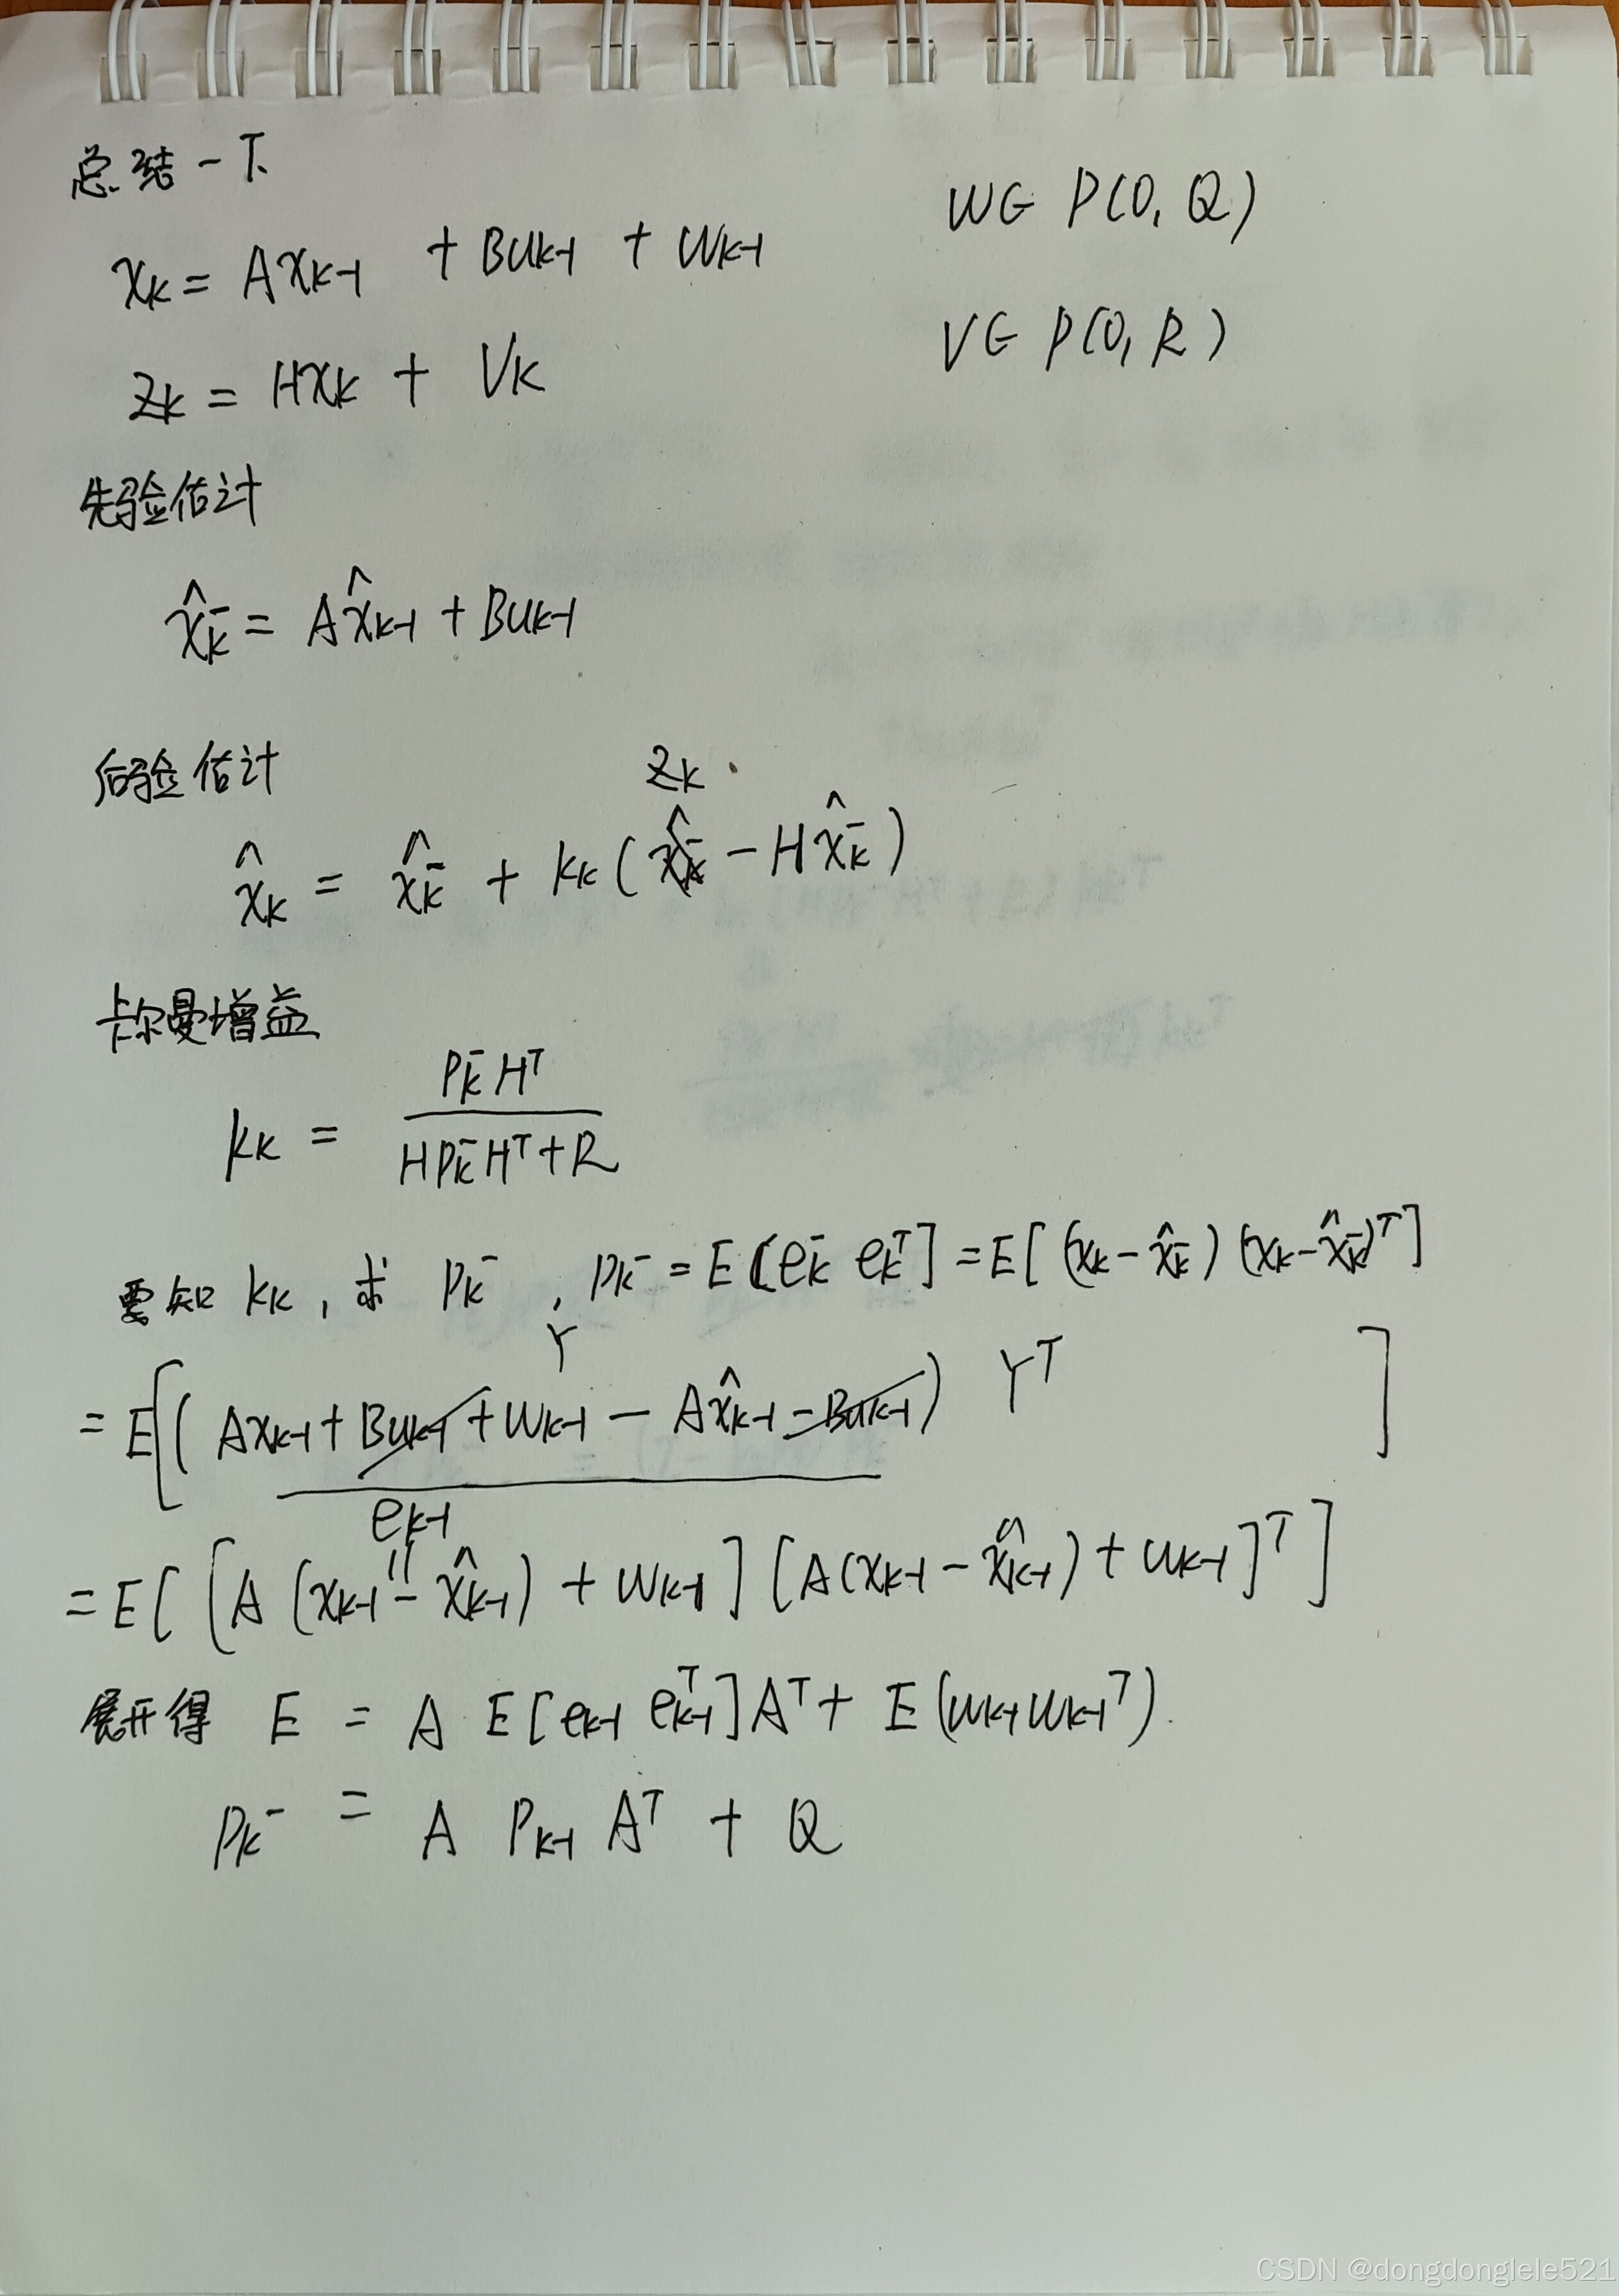 总结一下
W∈ P(0, Q)
xₖ = Axₖ₋₁ + Buₖ₋₁ + Wₖ₋₁
V∈ P(0, R)
Zₖ = Hxₖ + Vₖ
先验估计
x̂ₖ⁻ = Ax̂ₖ₋₁ + Buₖ₋₁
后验估计
Zₖ
x̂ₖ = x̂ₖ⁻ + kₖ( x̂ₖ⁻ - Hx̂ₖ⁻ )
卡尔曼增益
kₖ = Pₖ⁻Hᵀ / HPₖ⁻Hᵀ+R
要知 kₖ, 求 Pₖ⁻, Pₖ⁻ = E[eₖ⁻ eₖᵀ] = E[ (xₖ - x̂ₖ⁻) (xₖ - x̂ₖ⁻)ᵀ]
Y
= E[( Axₖ₋₁ + Buₖ₋₁ + Wₖ₋₁ - Ax̂ₖ₋₁ - Buₖ₋₁) Yᵀ ]
eₖ₋₁
= E[ [A (xₖ₋₁ - x̂ₖ₋₁) + Wₖ₋₁] [A(xₖ₋₁ - x̂ₖ₋₁) + Wₖ₋₁]ᵀ ]
展开得 E = A E[eₖ₋₁ eₖ₋₁ᵀ]Aᵀ + E(Wₖ₋₁Wₖ₋₁ᵀ).
Pₖ⁻ = A Pₖ₋₁ Aᵀ + Q
CSDN @dongdonglele521